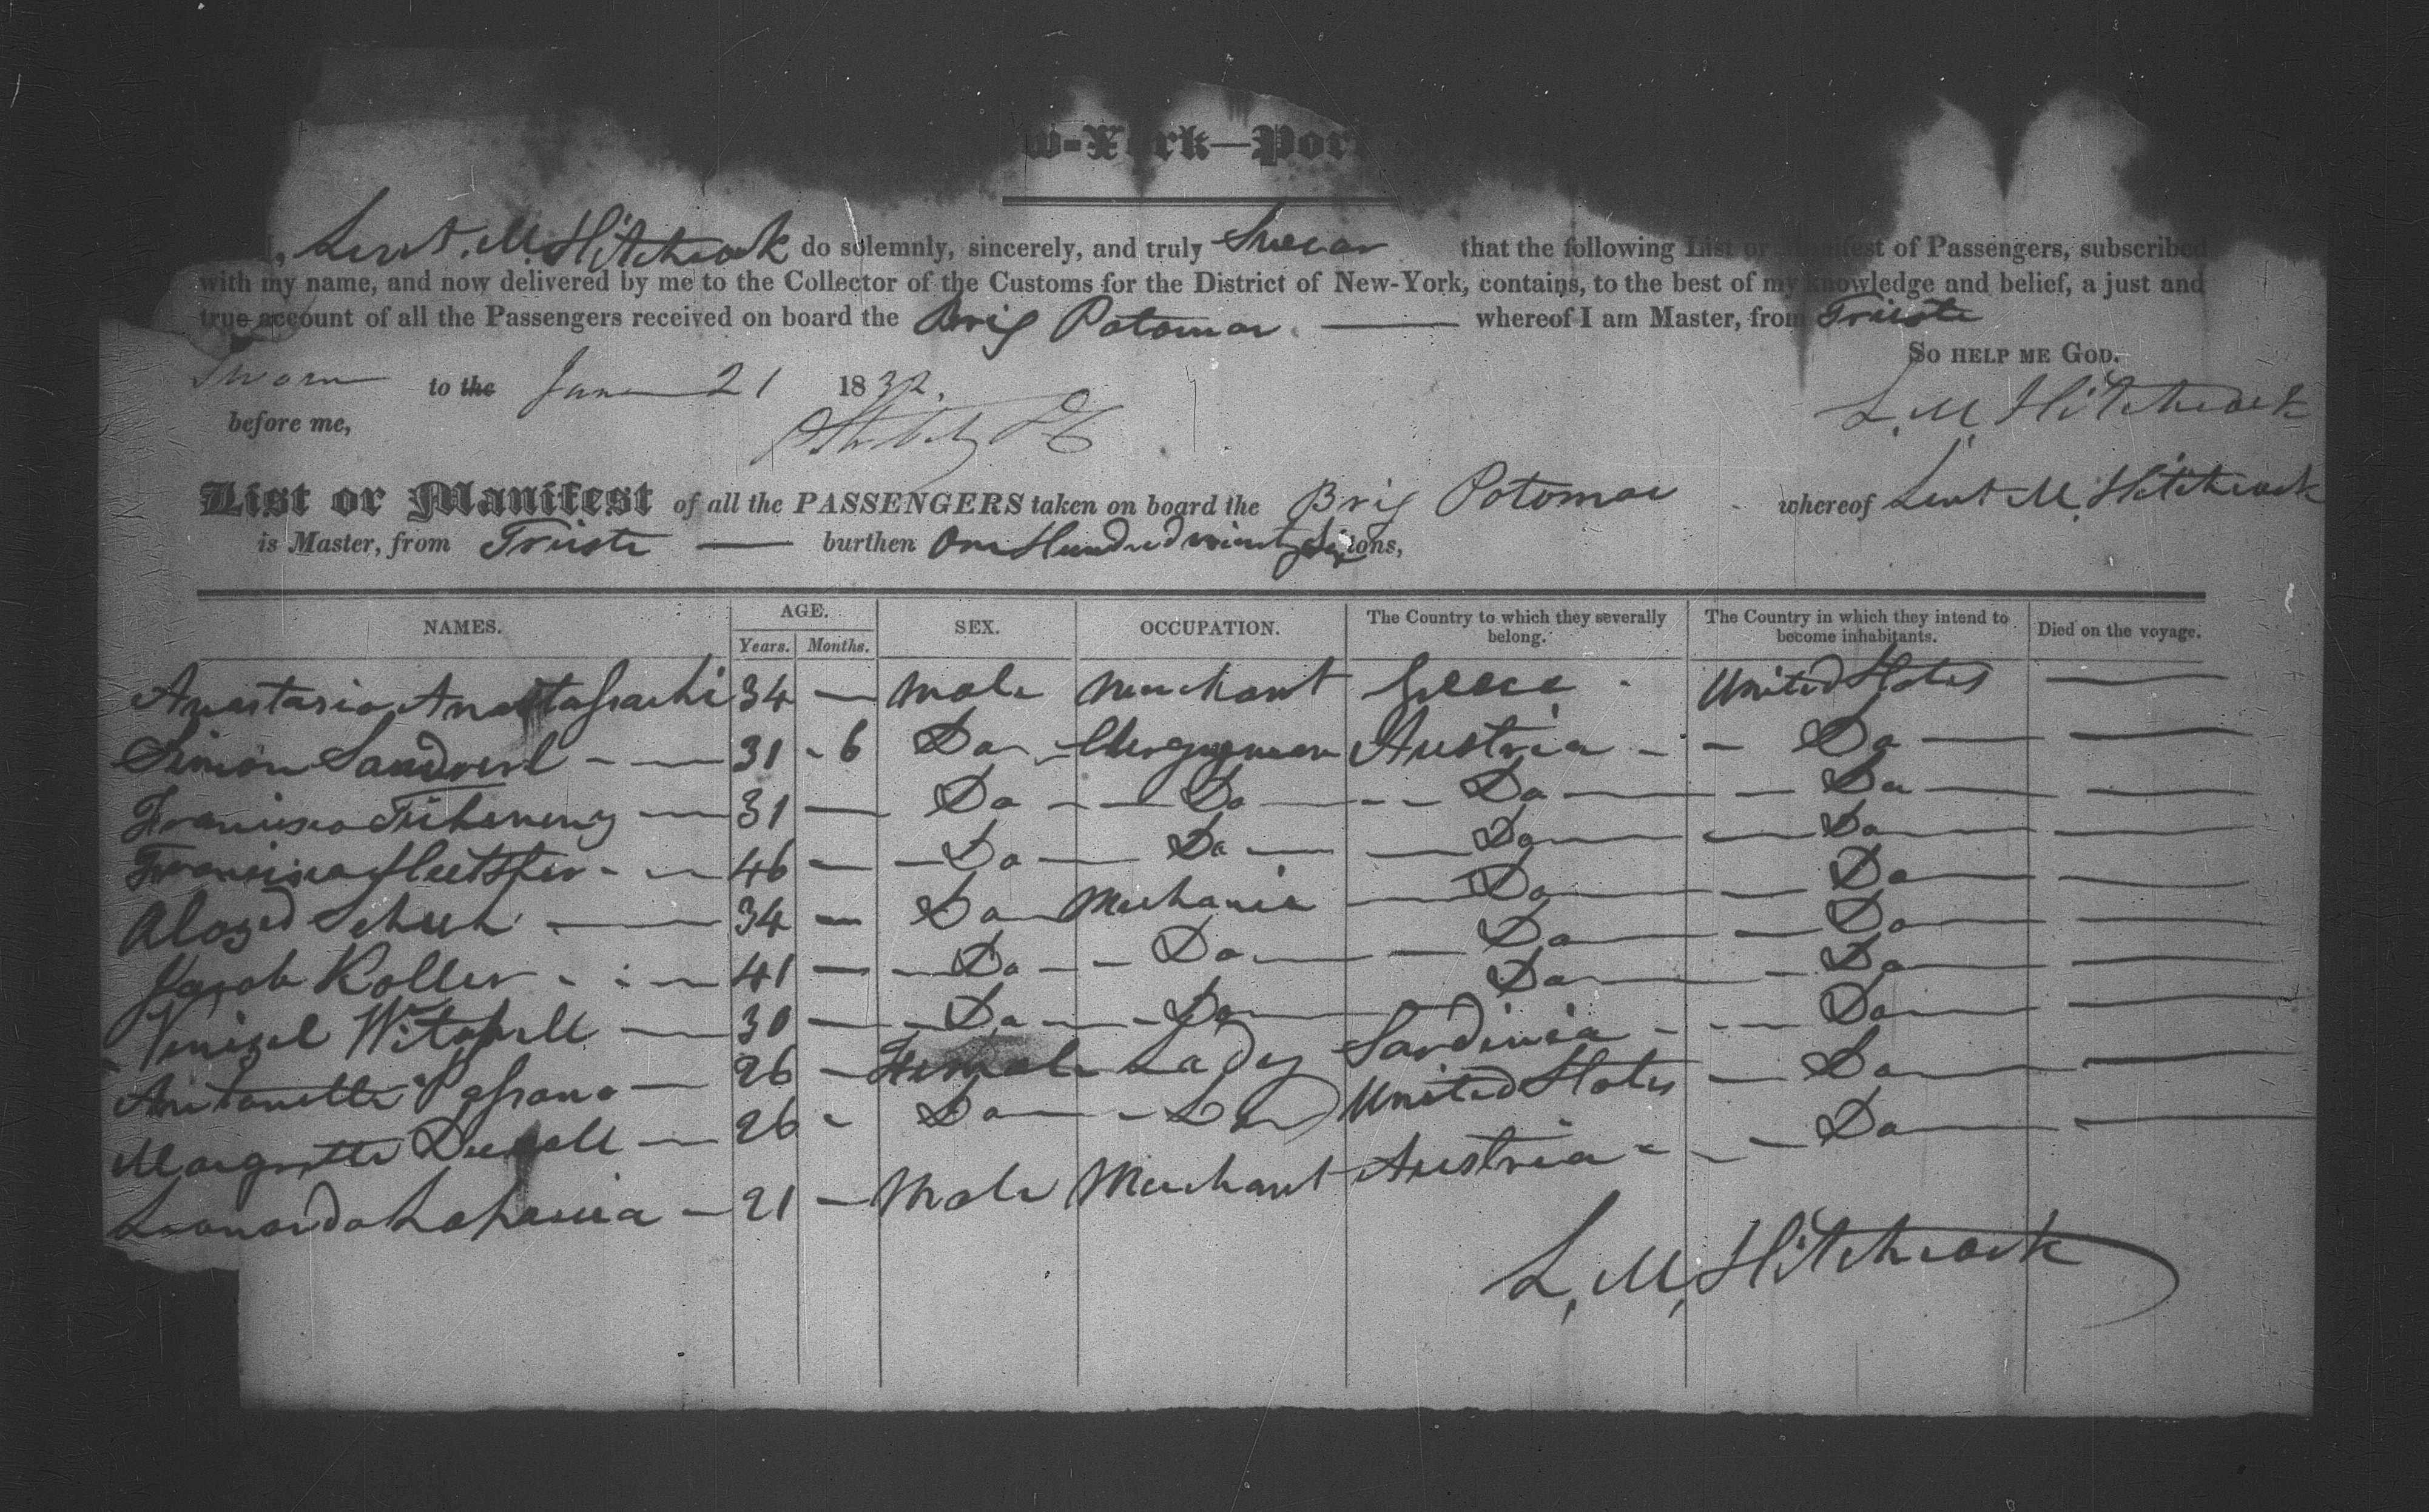 w-York—Por
Lent. M. Hitchcock do solemnly, sincerely, and truly Swear that the following List or Manifest of Passengers, subscribed
with my name, and now delivered by me to the Collector of the Customs for the District of New-York, contains, to the best of my knowledge and belief, a just and
true account of all the Passengers received on board the Brig Potomac whereof I am Master, from Trieste
SO HELP ME GOD.
Sworn to the June 21 1832.
L. M. Hitchcock
before me,
List or Manifest of all the PASSENGERS taken on board the Brig Potomac whereof Lent M. Hitchcock
is Master, from Trieste — burthen One Hundred ninety Six tons,
NAMES. AGE. Years. Months. SEX. OCCUPATION. The Country to which they severally belong. The Country in which they intend to become inhabitants. Died on the voyage.
Anastasio 34 — Male Merchant Greece United States —
Simon 31 - 6 Do Clergyman Austria - - Do —
Francisco 31 — Do Do Do Do —
Francisco 46 — Do Do Do Do —
Schuh 34 — Do Mechanic Do Do —
Jacob Koller 41 — Do Do Do Do —
30 — Do Do Do Do —
Antonetta 26 — Female Lady Sardinia Do —
Margretta 26 - Do Do United States Do —
Leonardo 21 — Male Merchant Austria Do —
L. M. Hitchcock